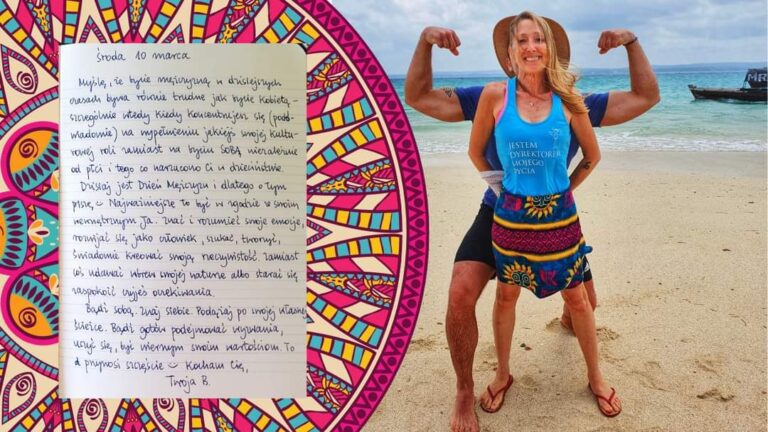 środa 10 marca
Myślę, że bycie mężczyzną w dzisiejszych
czasach bywa równie trudne jak bycie kobietą -
szczególnie wtedy kiedy koncentrujesz się (pod-
świadomie) na wypełnieniu jakiejś swojej kultu-
rowej roli zamiast na byciu SOBĄ niezależnie
od płci i tego co narzucono Ci w dzieciństwie.
Dzisiaj jest Dzień Mężczyzn i dlatego o tym
piszę. Najważniejsze to być w zgodzie z swoim
wewnętrznym Ja. Znać i rozumieć swoje emocje,
rozwijać się, jako człowiek, szukać, tworzyć,
świadomie kreować swoją rzeczywistość. Zamiast
coś udawać wbrew swojej naturze albo starać się
zaspokoić czyjeś oczekiwania.
Bądź sobą. Znaj siebie. Podążaj po swojej własnej
ścieżce. Bądź gotów podejmować wyzwania,
uczyć się, być wiernym swoim wartościom. To
przynosi szczęście Kocham Cię,
Twoja B.
JESTEM
DYREKTOREM
MOJEGO
ŻYCIA
MR